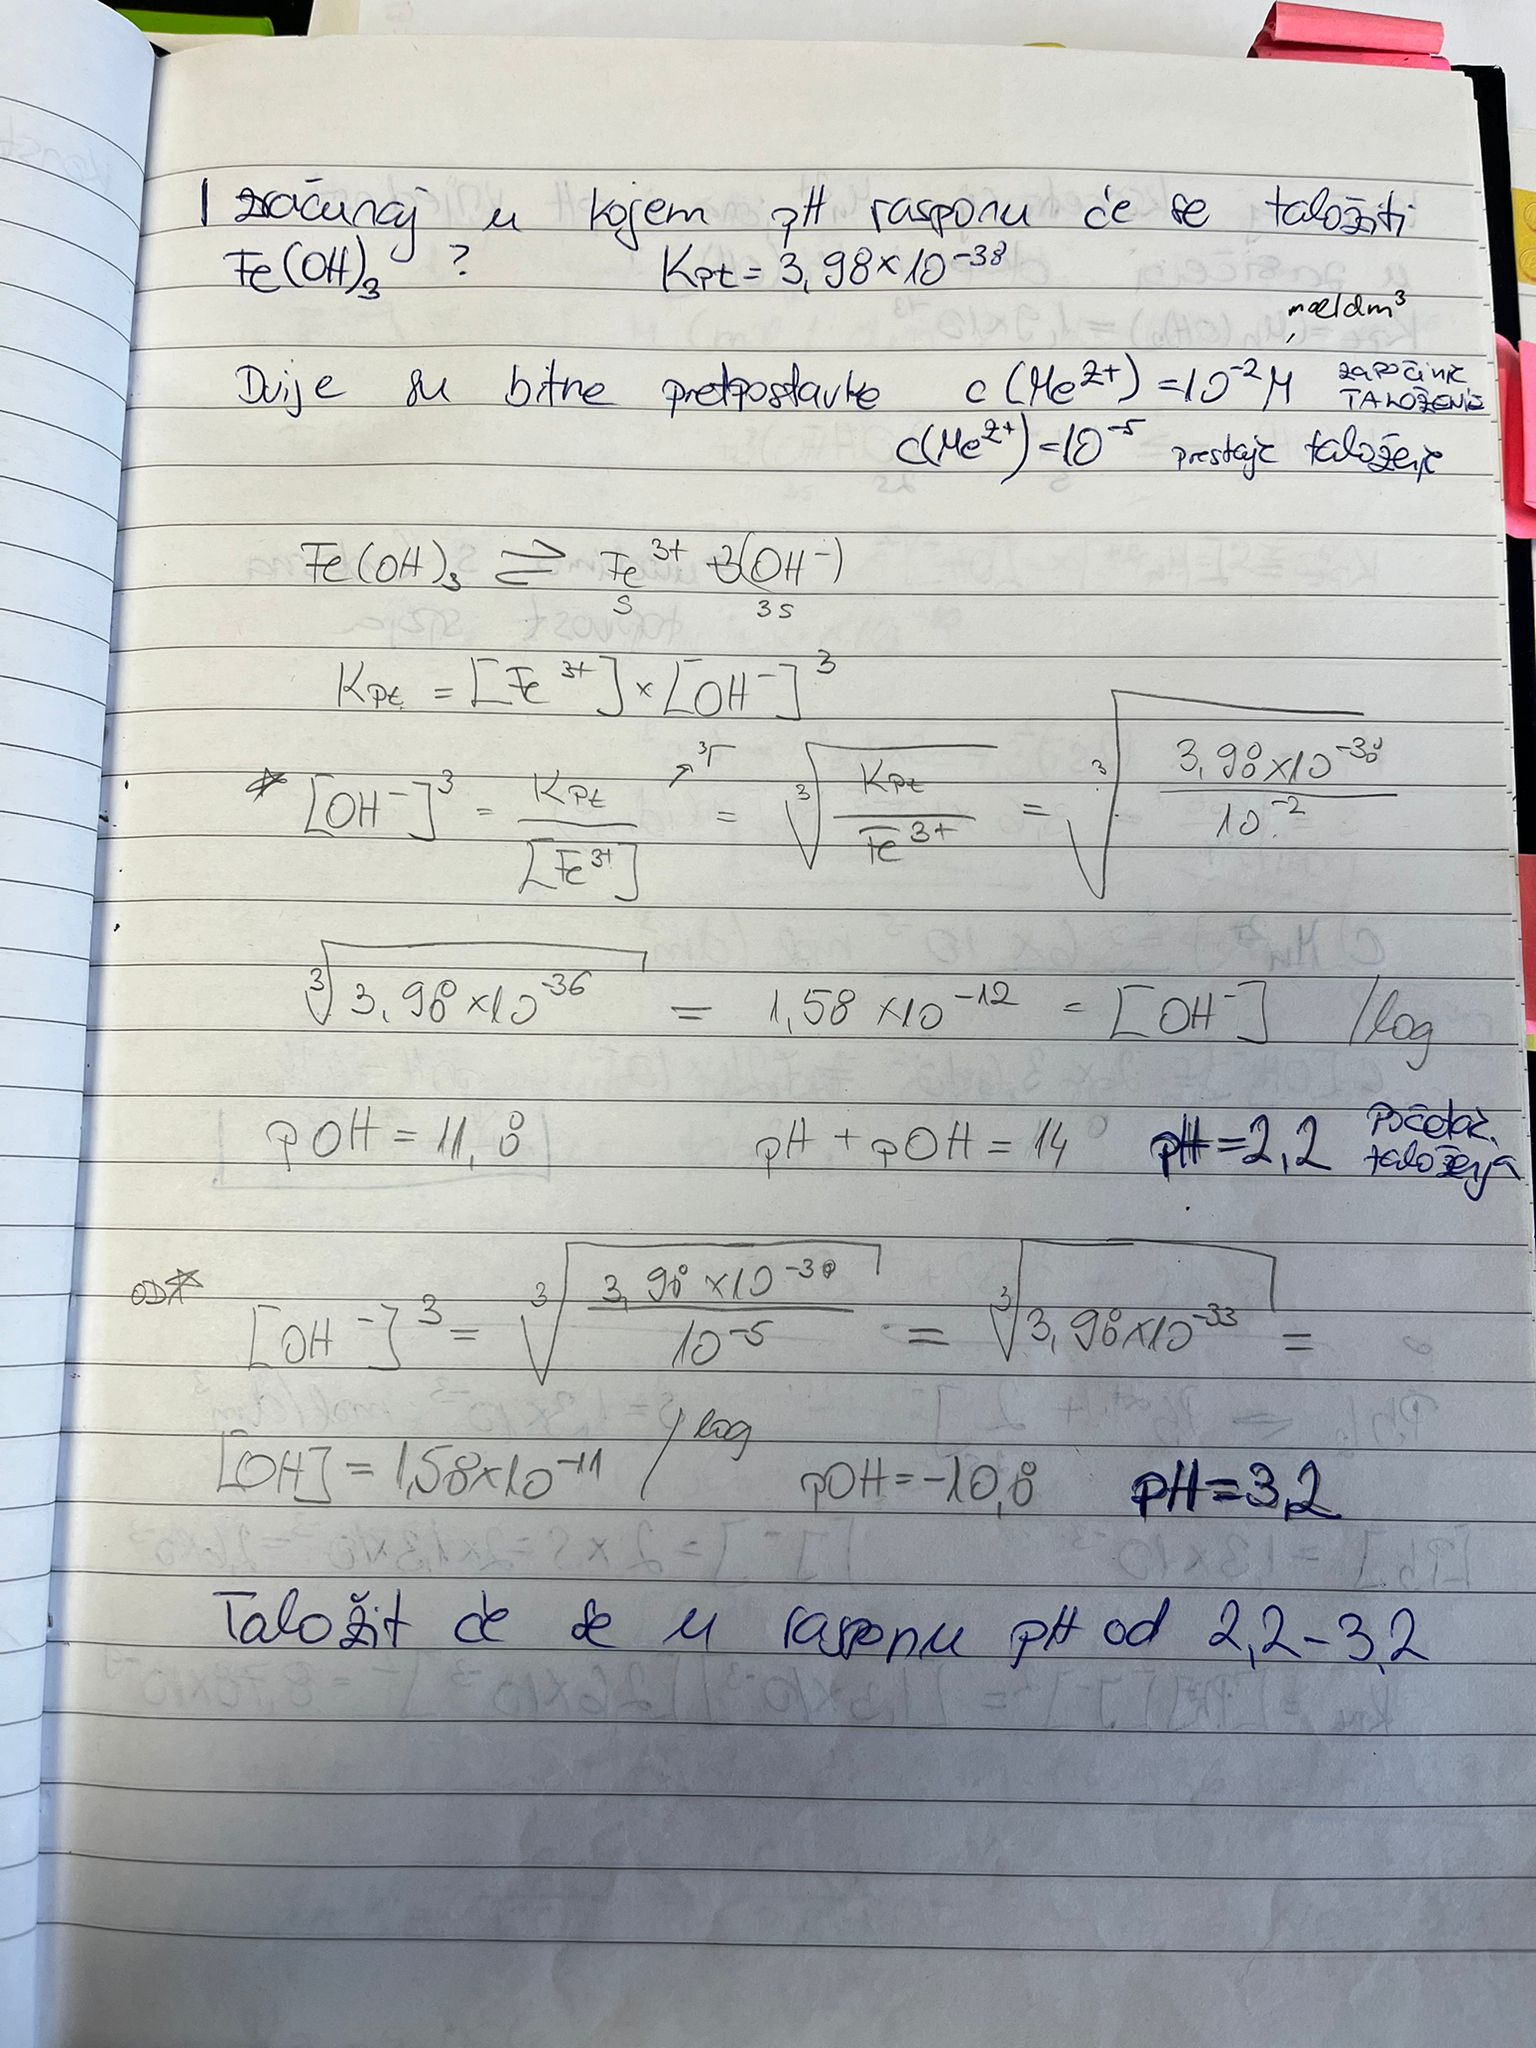 Izračunaj u kojem pH rasponu će se taložiti
Fe(OH)₃ ? Kpt = 3,98×10⁻³⁸
mol/dm³
Dvije su bitne pretpostavke c(Me²⁺) = 10⁻² M započinje TALOŽENJE
c(Me²⁺) = 10⁻⁵ prestaje taloženje
Fe(OH)₃ ⇌ Fe³⁺ + 3(OH⁻)
s 3s
Kpt = [Fe³⁺] × [OH⁻]³
* [OH⁻]³ = Kpt / [Fe³⁺] ↗ ³√ = ³√(Kpt / Fe³⁺) = ³√(3,98×10⁻³⁸ / 10⁻²)
³√(3,98×10⁻³⁶) = 1,58×10⁻¹² = [OH⁻] /log
pOH = 11,8 pH + pOH = 14 pH = 2,2 taloženja
OD* [OH⁻]³ = ³√(3,98×10⁻³⁸ / 10⁻⁵) = ³√(3,98×10⁻³³) =
[OH] = 1,58×10⁻¹¹ /log pOH = -10,8 pH = 3,2
Taložit će se u rasponu pH od 2,2 – 3,2